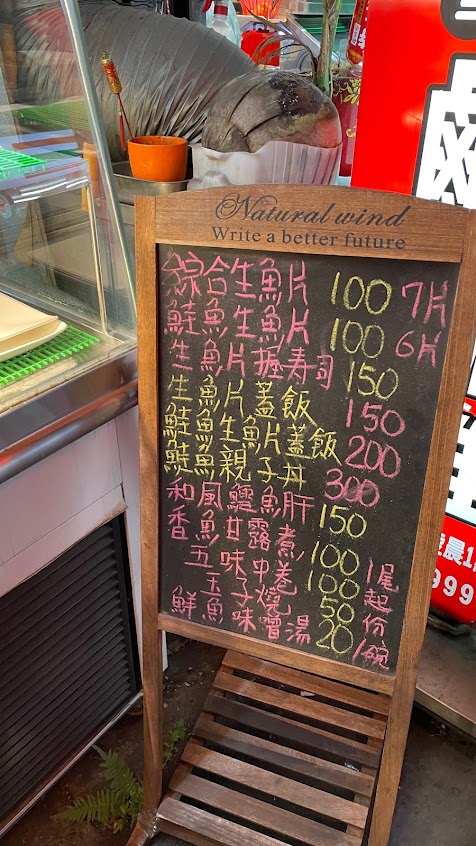 Natural wind
Write a better future
綜合生魚片 100 7片
鮭魚生魚片 100 6片
生魚片握壽司 150
生魚片蓋飯 150
鮭魚生魚片蓋飯 200
鮭魚親子丼 300
和風鱈魚肝 150
香魚甘露煮 100 1尾
五味中卷 100 起
玉子燒 50 份
鮮魚味噌湯 20 /碗
999